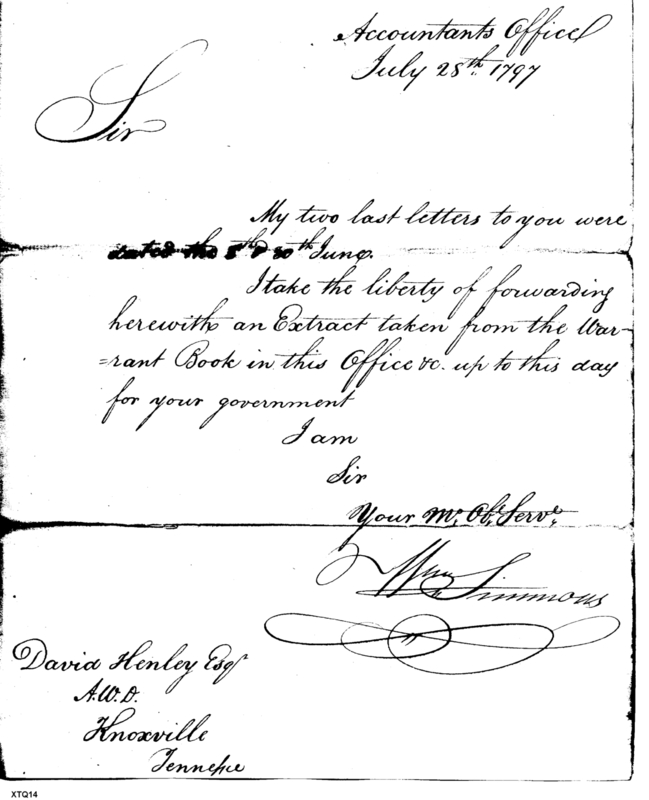 Accountants Office
July 28th. 1797
Sir
My two last letters to you were
dated the 5th & 30th June.
I take the liberty of forwarding
herewith an Extract taken from the War-
=rant Book in this Office &c. up to this day
for your government
I am
Sir
Your Mo. Obt. Servt.
Wm Simmons
David Henley Esqr
A.W.D.
Knoxville
Tennessee
XTQ14